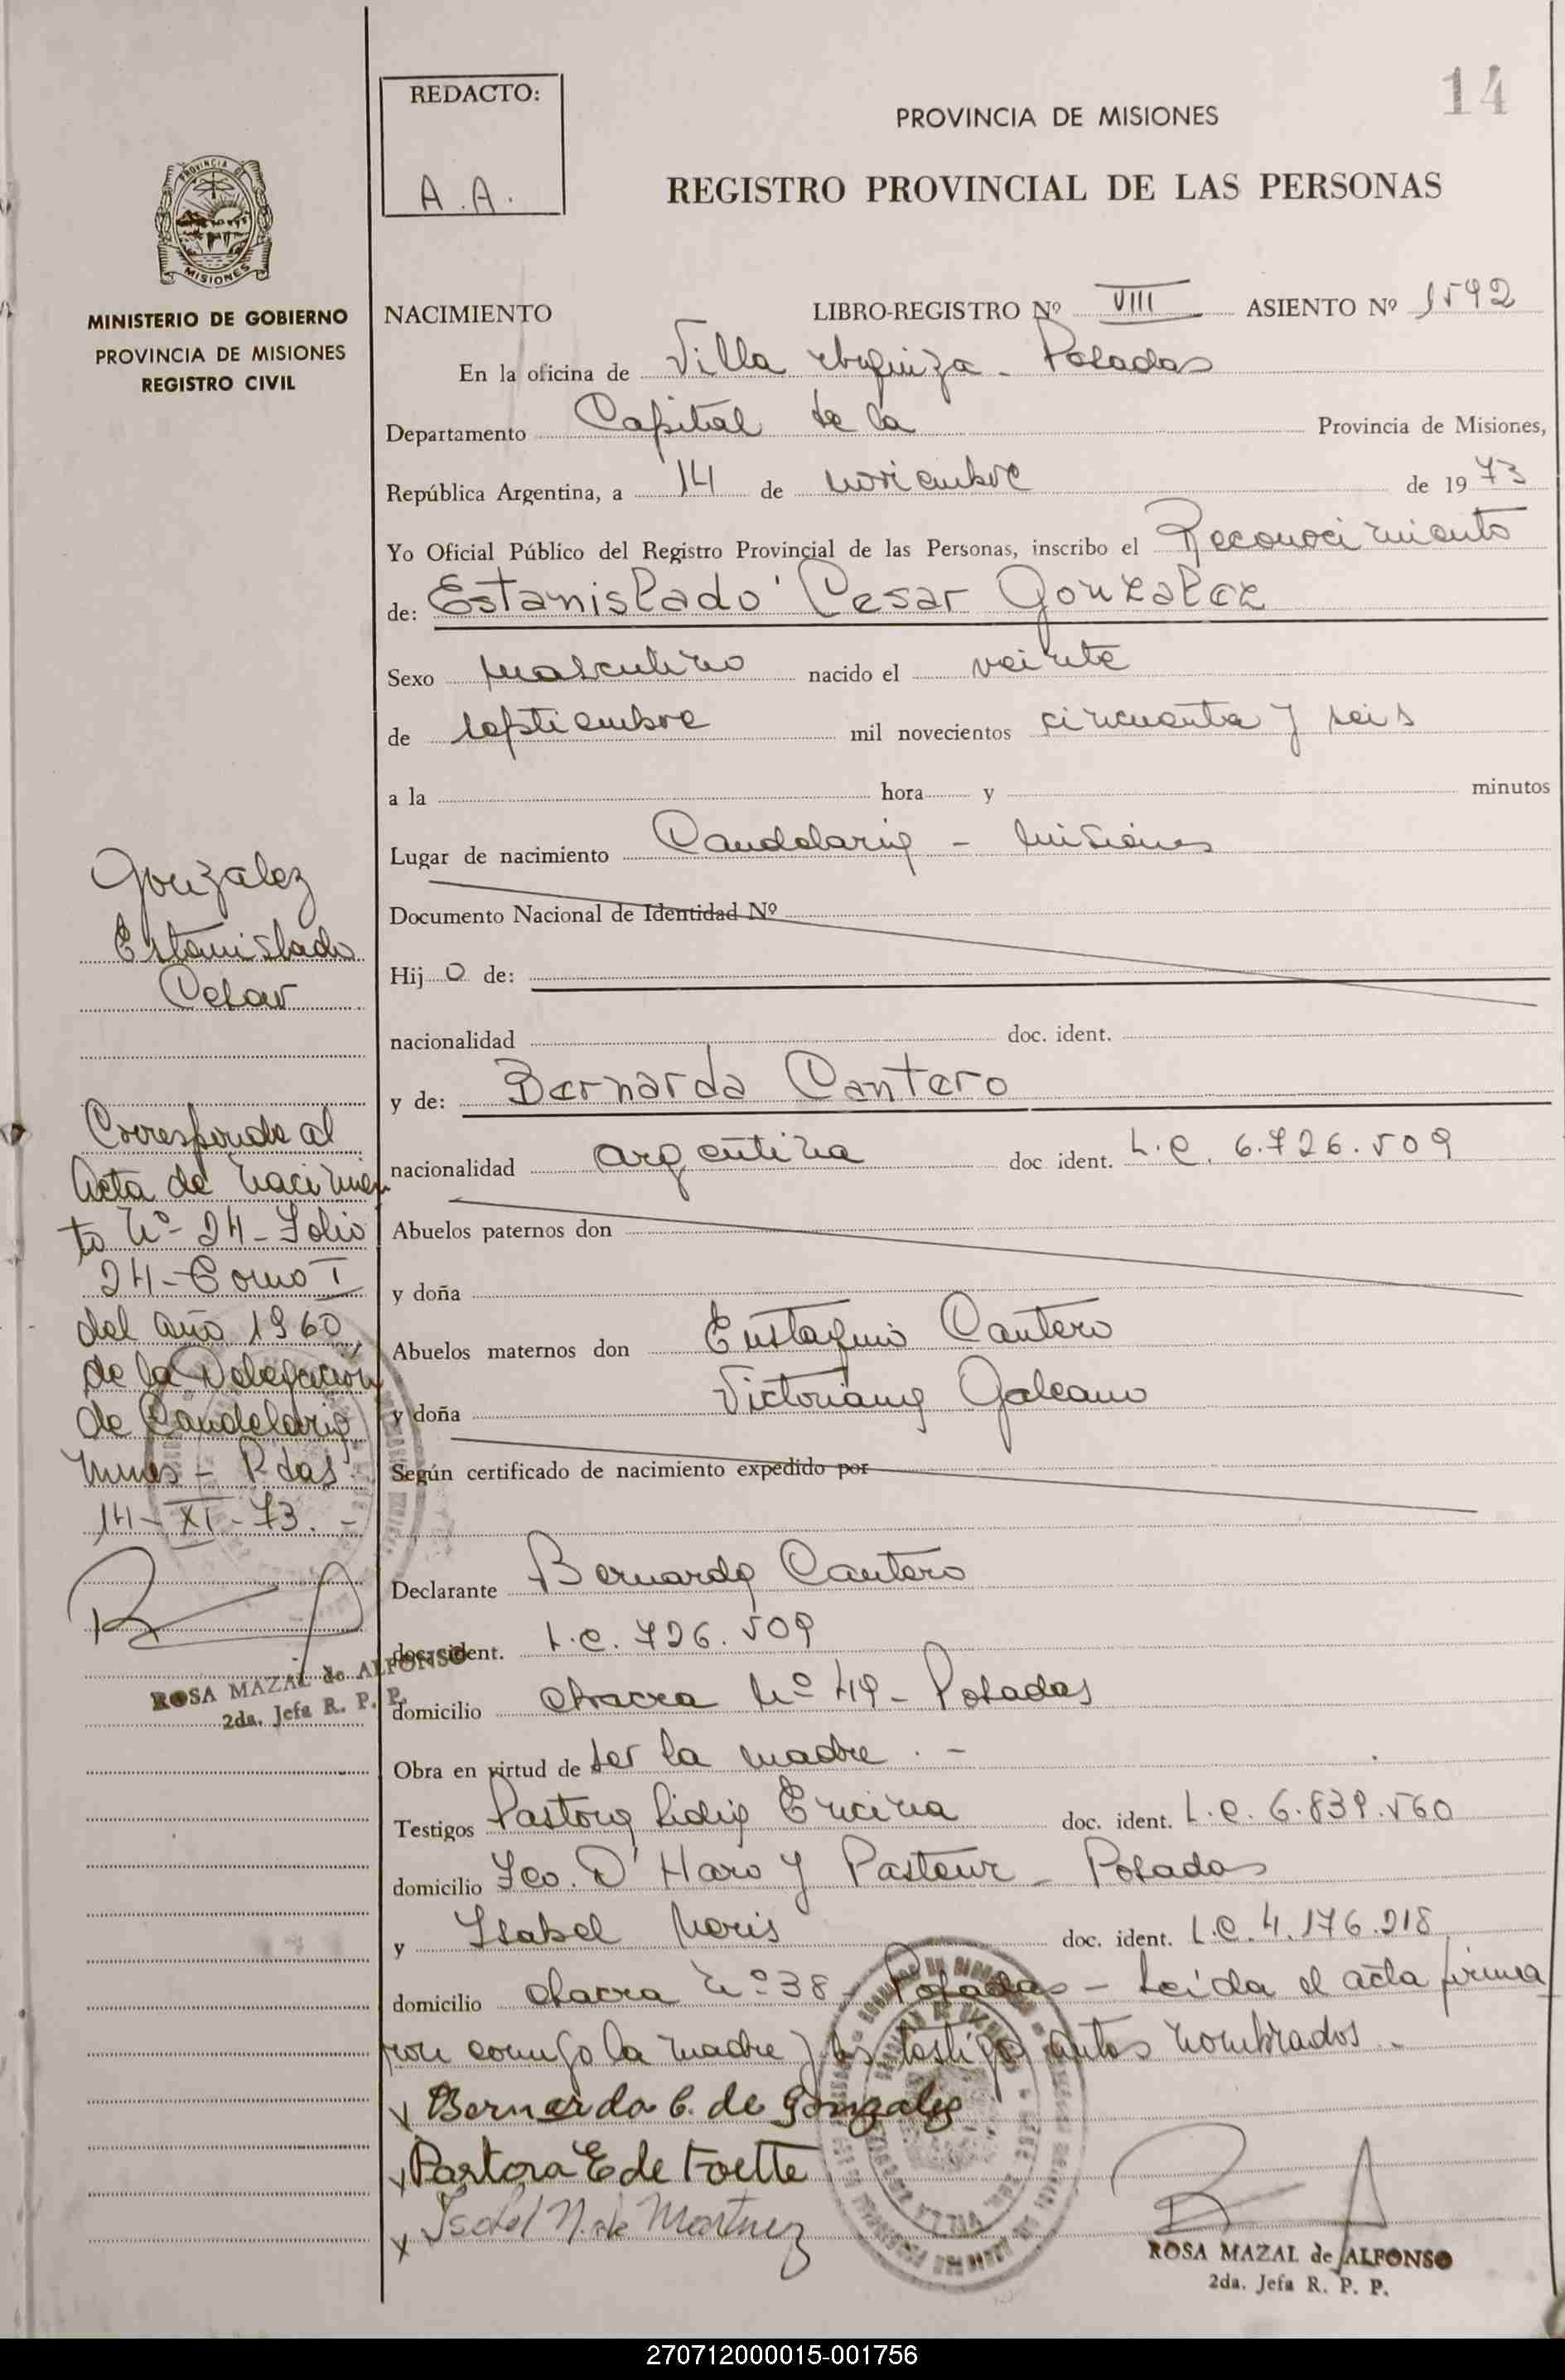 14
REDACTO:
A.A.
PROVINCIA DE MISIONES
REGISTRO PROVINCIAL DE LAS PERSONAS
PROVINCIA DE
MISIONES
MINISTERIO DE GOBIERNO
PROVINCIA DE MISIONES
REGISTRO CIVIL
NACIMIENTO LIBRO-REGISTRO Nº VIII ASIENTO Nº 1592
En la oficina de Villa Urquiza - Posadas
Departamento Capital de la Provincia de Misiones,
República Argentina, a 14 de noviembre de 1973
Yo Oficial Público del Registro Provincial de las Personas, inscribo el Reconocimiento
de: Estanislado Cesar Gonzalez
Sexo masculino nacido el veinte
de septiembre mil novecientos cincuenta y seis
a la hora y minutos
Lugar de nacimiento Candelaria - Misiones
Documento Nacional de Identidad Nº
Hijo de:
nacionalidad doc. ident.
y de: Bernarda Cantero
nacionalidad argentina doc ident. L.C. 6.726.509
Abuelos paternos don
y doña
Abuelos maternos don Eustaquio Cantero
y doña Victoriana Galeano
Según certificado de nacimiento expedido por
Declarante Bernarda Cantero
doc. ident. L.C. 726.509
domicilio chacra Nº 49 - Posadas
Obra en virtud de ser la madre. -
Testigos Pastora Lidia Encina doc. ident. L.C. 6.839.560
domicilio Fco. D' Haro y Pasteur - Posadas
y Isabel Neris doc. ident. L.C. 4.176.218
domicilio chacra Nº 38 - Posadas - Leída el acta firma
ron conmigo la madre y los testigos antes nombrados -
x Bernarda C. de Gonzalez
x Pastora E de
x Isabel N. de Martinez
ROSA MAZAL de ALFONSO
2da. Jefa R. P. P.
Gonzalez
Estanislado
Cesar
Corresponde al
Acta de nacimien
to Nº 24 - Folio
24 - Tomo I
del año 1960
de la Delegación
de Candelaria
Mnes - Pdas.
14 - XI - 73. -
ROSA MAZAL de ALFONSO
2da. Jefa R. P. P.
270712000015-001756